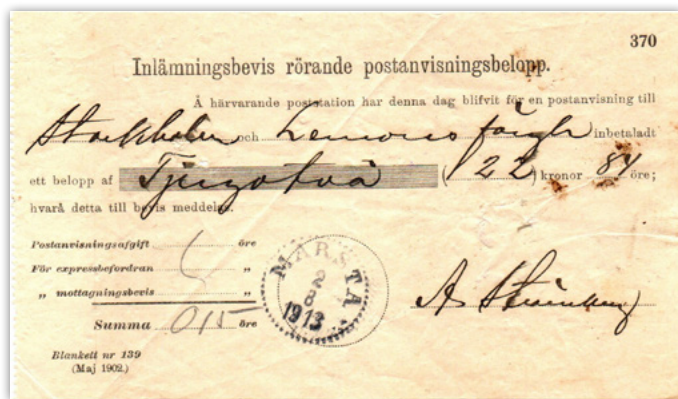 370
Inlämningsbevis rörande postanvisningsbelopp.
Å härvarande poststation har denna dag blifvit för en postanvisning till
Stockholm och inbetaladt
ett belopp af Tjugotvå (22) kronor 84 öre;
hvarå detta till bevis meddelas.
Postanvisningsafgift öre
För expressbefordran „
„ mottagningsbevis „
Summa 015 öre
MÄRSTA
2
8
1913
Blankett nr 139
(Maj 1902.)